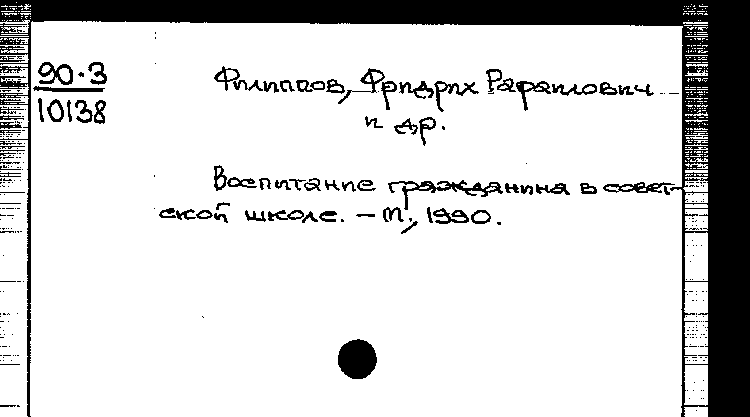 90-3
10138
Филиппов, Фридрих Рафаилович
и др.
Воспитание гражданина в совет-
ской школе. – М., 1990.